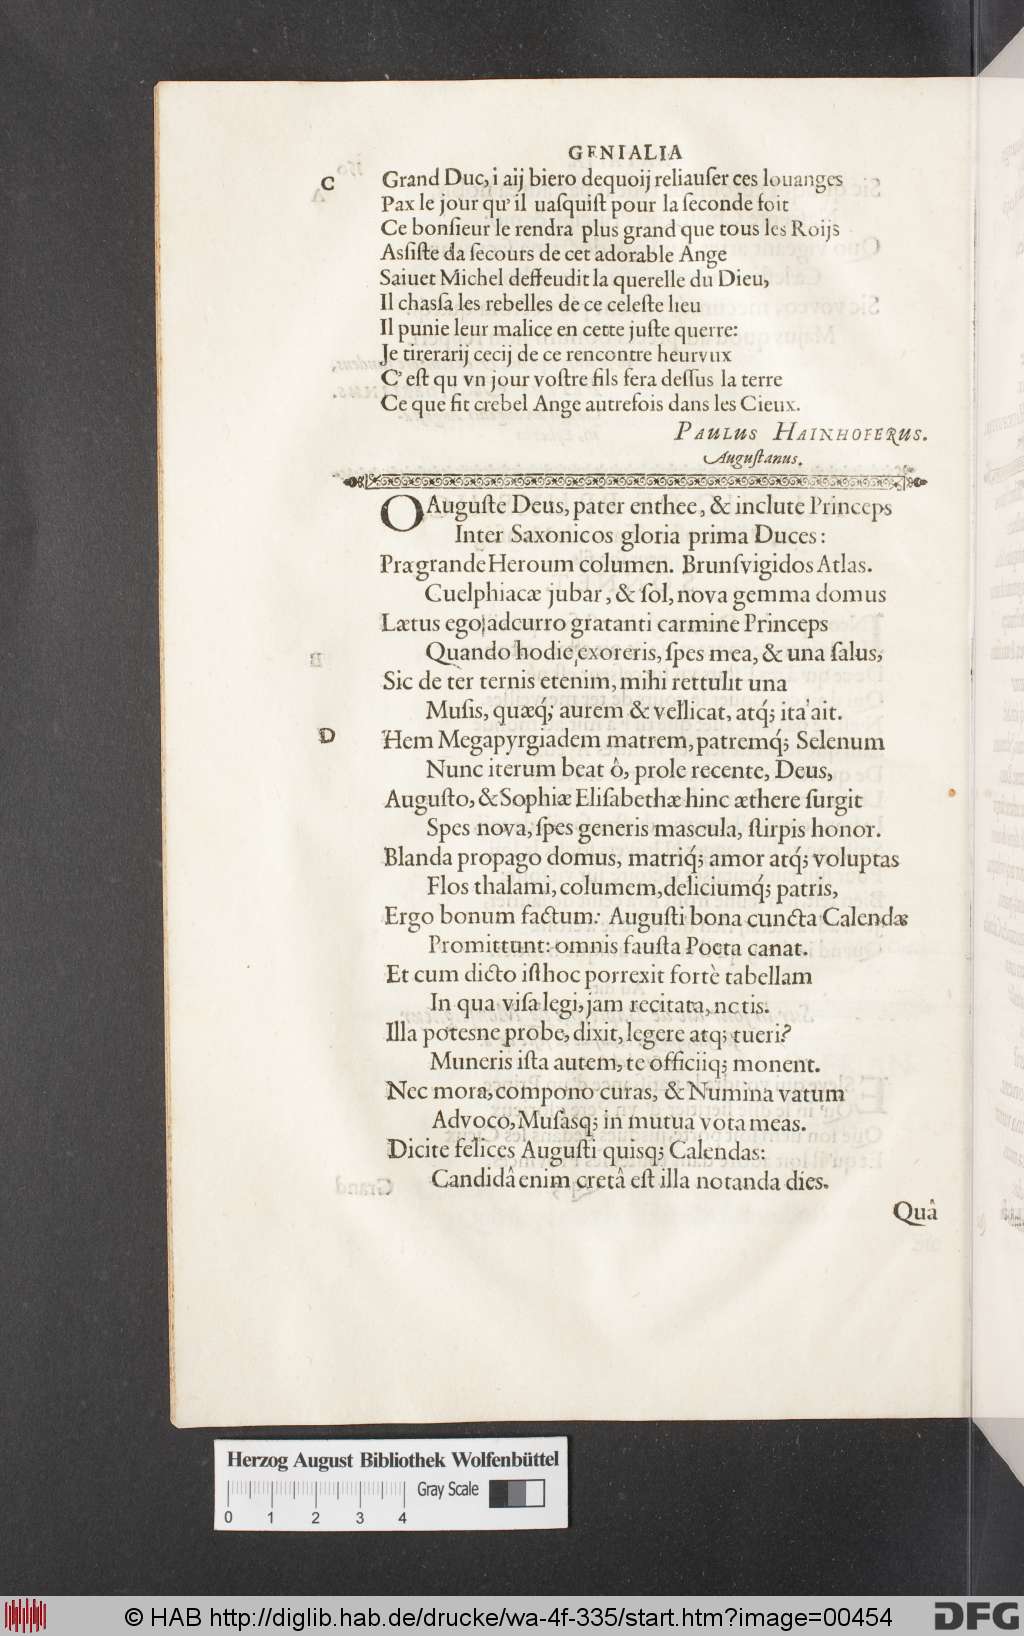 GENIALIA
C Grand Duc, i aij biero dequoij reliauſer ces louanges
Pax le jour qu' il uaſquiſt pour la ſeconde foit
Ce bonſieur le rendra plus grand que tous les Roijs
Asſiſte da ſecours de cet adorable Ange
Saiuet Michel deffeudit la querelle du Dieu,
Il chasſa les rebelles de ce celeſte lieu
Il punie leur malice en cette juſte querre:
Je tirerarij cecij de ce rencontre heurvux
C' eſt qu vn jour voſtre fils ſera deſſus la terre
Ce que fit crebel Ange autrefois dans les Cieux.
PAULUS HAINHOFERUS.
Auguſtanus.
O Auguſte Deus, pater enthee, & inclute Princeps
Inter Saxonicos gloria prima Duces:
Prægrande Heroum columen. Brunſvigidos Atlas.
Guelphiacæ jubar, & ſol, nova gemma domus
Lætus ego adcurro gratanti carmine Princeps
Quando hodie exoreris, ſpes mea, & una ſalus,
Sic de ter ternis etenim, mihi rettulit una
Muſis, quæq́; aurem & vellicat, atq́; ita ait.
D Hem Megapyrgiadem matrem, patremq́; Selenum
Nunc iterum beat ô, prole recente, Deus,
Auguſto, & Sophiæ Eliſabethæ hinc æthere ſurgit
Spes nova, ſpes generis maſcula, ſtirpis honor.
Blanda propago domus, matriq́; amor atq́; voluptas
Flos thalami, columem, deliciumq́; patris,
Ergo bonum factum: Auguſti bona cuncta Calendæ
Promittunt: omnis fauſta Poeta canat.
Et cum dicto iſthoc porrexit fortè tabellam
In qua viſa legi, jam recitata, notis.
Illa potesne probe, dixit, legere atq; tueri?
Muneris iſta autem, te officiiq; monent.
Nec mora, compono curas, & Numina vatum
Advoco, Muſasq; in mutua vota meas.
Dicite felices Auguſti quisq; Calendas:
Candidâ enim cretâ eſt illa notanda dies.
Quâ
Herzog August Bibliothek Wolfenbüttel
Gray Scale
0 1 2 3 4
© HAB http://diglib.hab.de/drucke/wa-4f-335/start.htm?image=00454
DFG